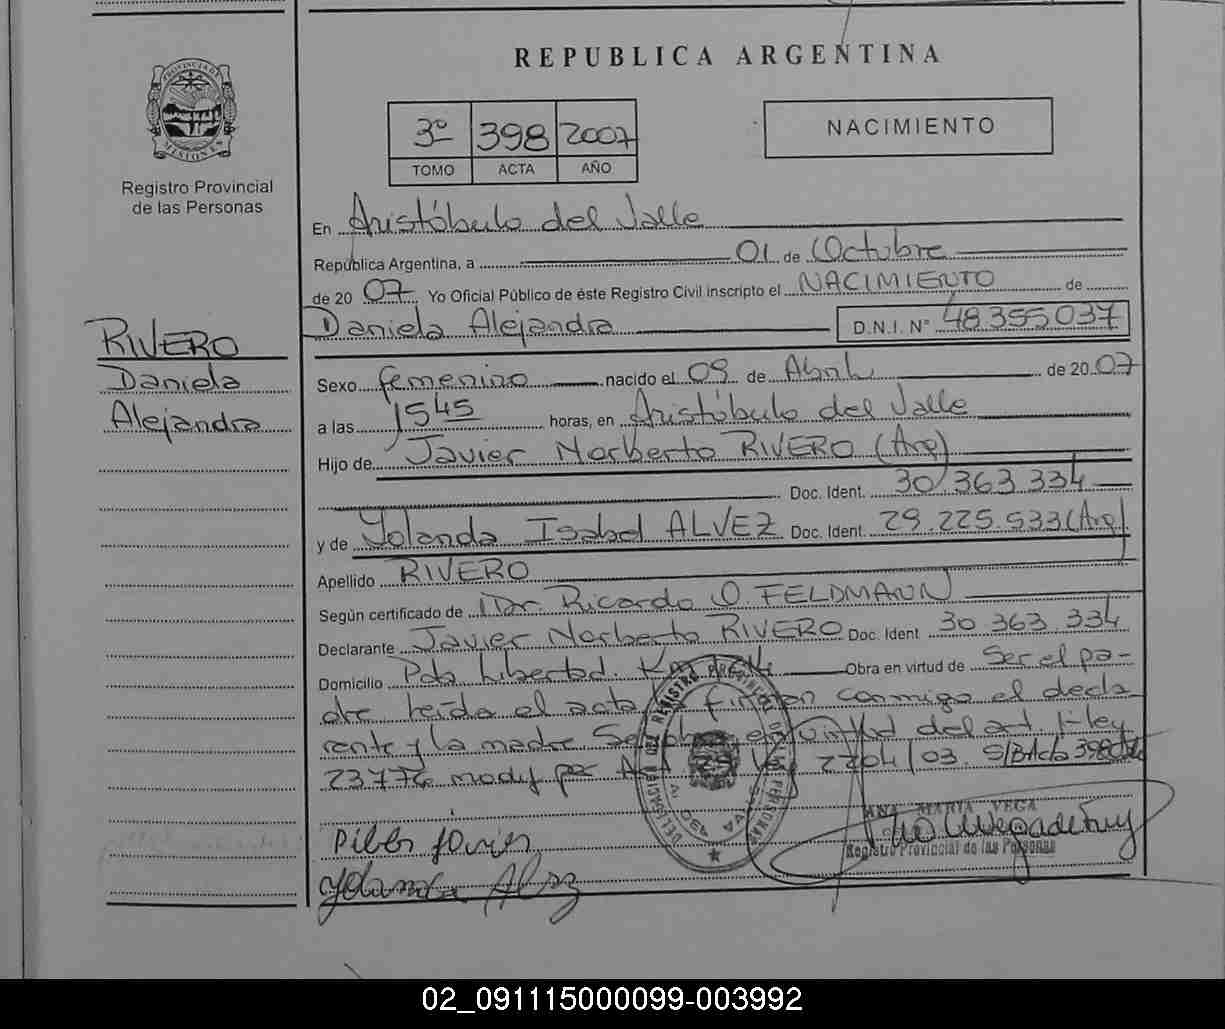 REPUBLICA ARGENTINA
PROVINCIA DE
MISIONES
Registro Provincial
de las Personas
3º 398 2007
TOMO ACTA AÑO
NACIMIENTO
En Aristóbulo del Valle
República Argentina, a 01 de Octubre
de 2007 Yo Oficial Público de éste Registro Civil inscripto el NACIMIENTO de
Daniela Alejandra D.N.I. Nº 48355037
RIVERO
Daniela
Alejandra
Sexo femenino nacido el 09 de Abril de 2007
a las 1545 horas, en Aristóbulo del Valle
Hijo de Javier Norberto RIVERO (Arg)
Doc. Ident. 30 363 334
y de Yolanda Isabel ALVEZ Doc. Ident. 29.225.533 (Arg)
Apellido RIVERO
Según certificado de Dr. Ricardo O FELDMANN
Declarante Javier Norberto RIVERO Doc. Ident 30 363 334
Domicilio Pto Libertad. Obra en virtud de Ser el pa-
dre leída el acta firman conmigo el decla
rante y la madre Se en virtud del art. 1- ley
23776 modif por Art 29 Ley 2204/03. S/Bricto 398
ANA MARIA VEGA
Registro Provincial de las Personas
Javier
Yolanda
02_091115000099-003992